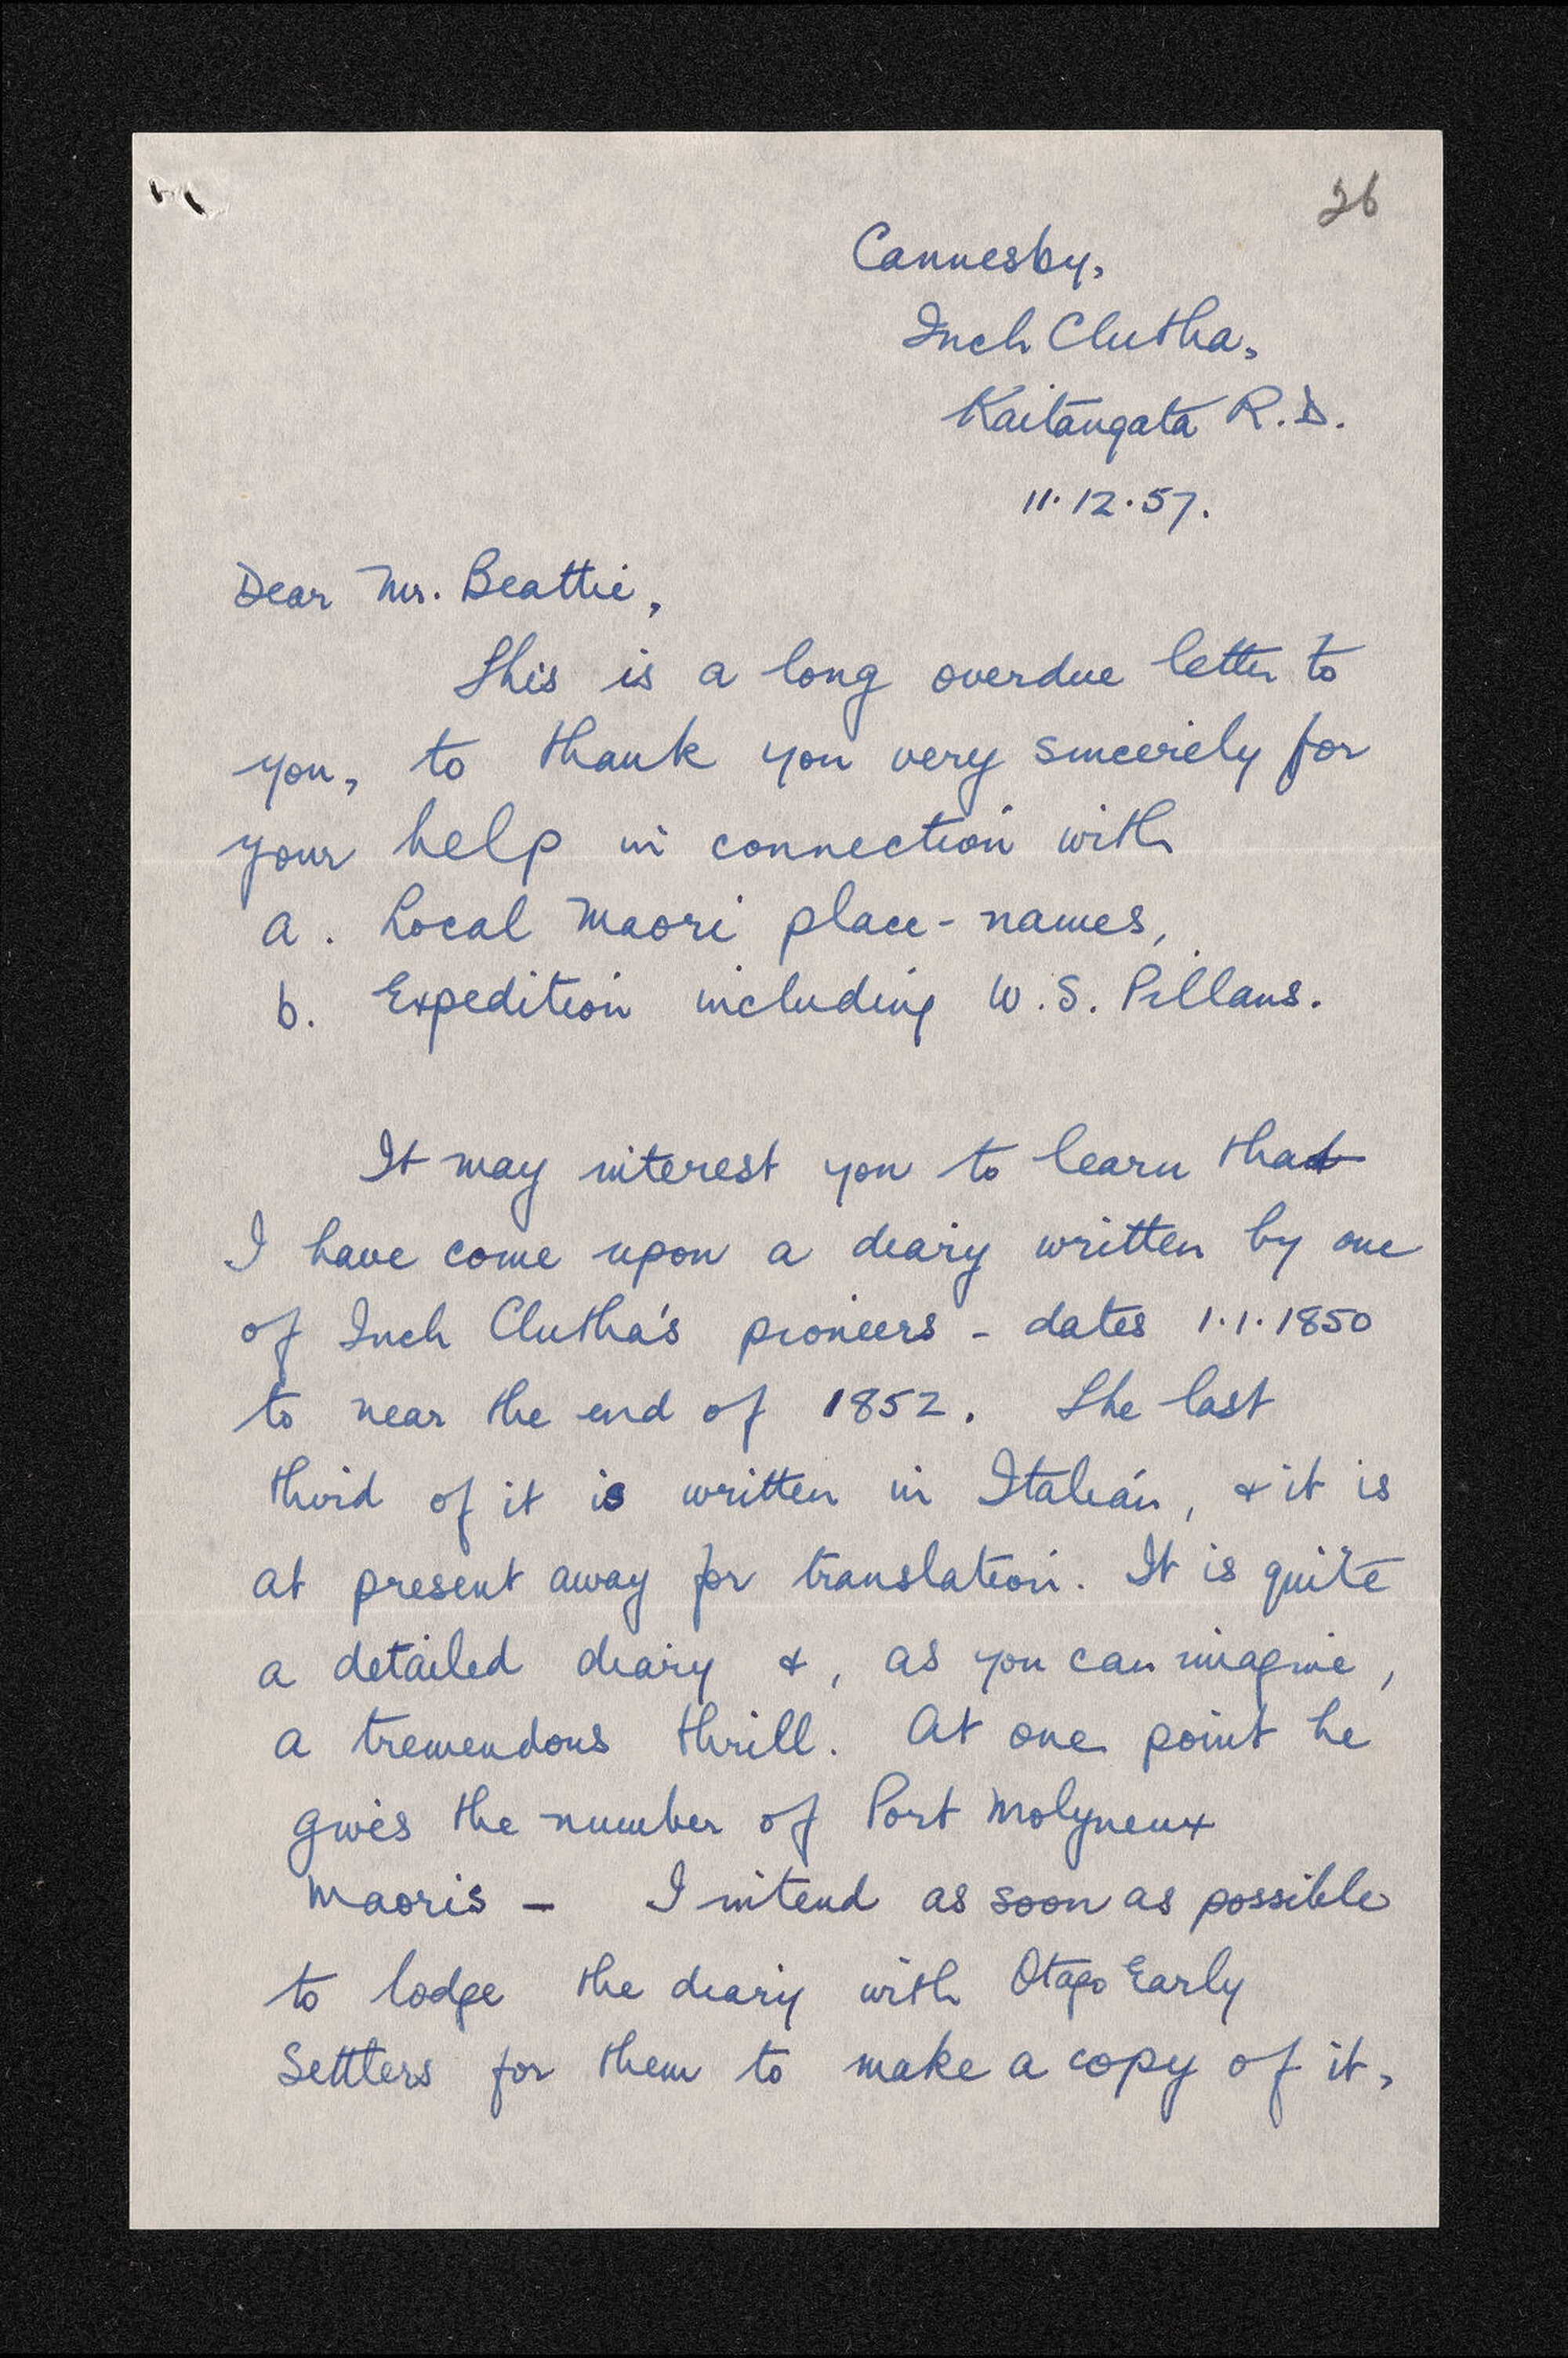 26
Cannesby,
Inch Clutha,
Kaitangata R.D.
11.12.57.
Dear Mr. Beattie,
This is a long overdue letter to
you, to thank you very sincerely for
your help in connection with
a. Local Maori place-names,
b. Expedition including W.S. Pillans.
It may interest you to learn that
I have come upon a diary written by one
of Inch Clutha's pioneers - dates 1.1.1850
to near the end of 1852. The last
third of it is written in Italian, & it is
at present away for translation. It is quite
a detailed diary &, as you can imagine,
a tremendous thrill. At one point he
gives the number of Port Molyneux
Maoris - I intend as soon as possible
to lodge the diary with Otago Early
Settlers for them to make a copy of it,